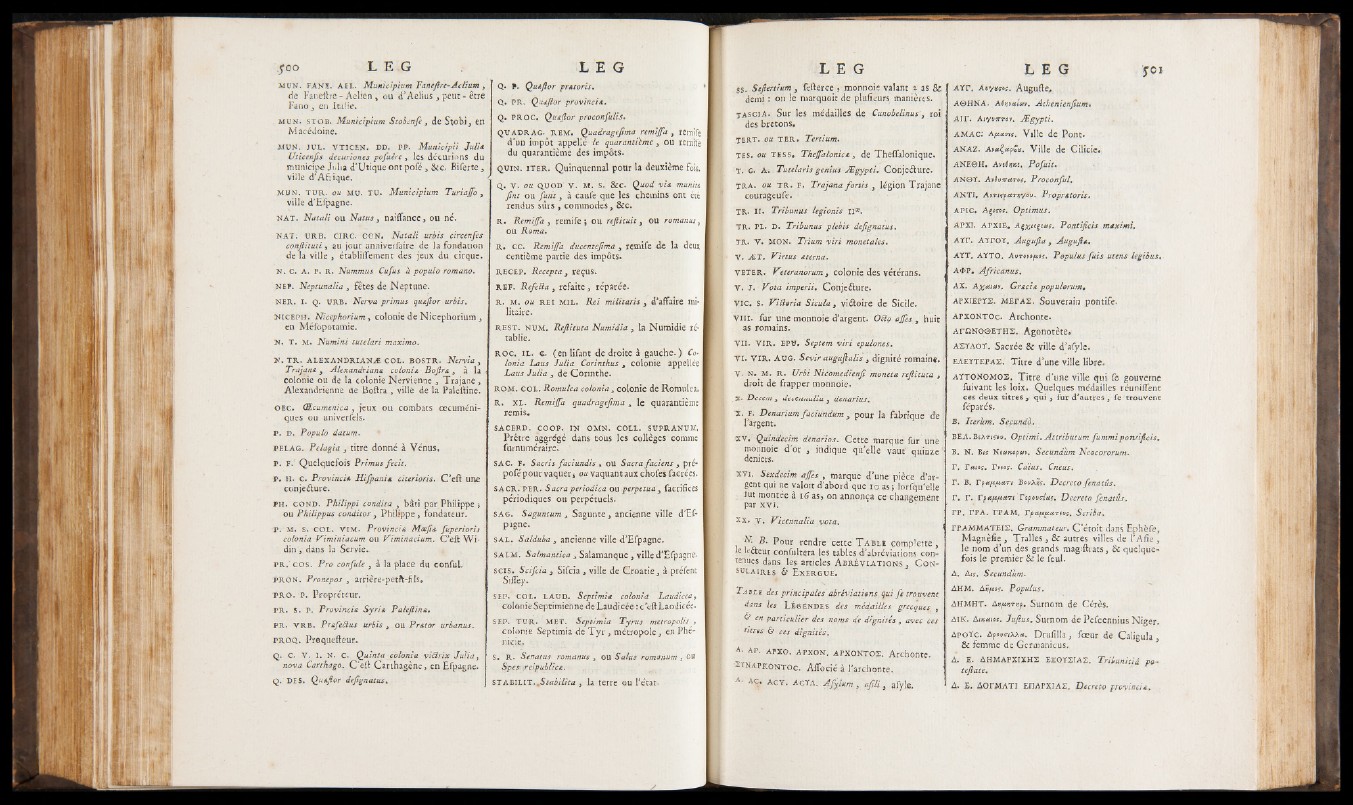 500 LEG LEG
MUN. FANE. AEL. Municipium Faneſtre-Aelium,
de Faneſtre-Aelien, ou d'Aelius, peut-être
Fano, en Italie.
MUN. STOB. Municipium Stobenſe, de Stobi, en
Macédoine.
MUN. JUL. VTICEN. DD. PP. Municipii Julia
Uticenſis decuriones poſuêre, les décurions du
municipe Julia d'Utique ont poſé, &c. Biſerte,
ville d'Afrique.
MUN. TUR. ou MU. TU. Municipium Turiaſſo,
ville d'Eſpagne.
NAT. Natali ou Natus, naiſſance, ou né.
NAT. URB. CIRC. CON. Natali urbis circenſes
conſtituti, au jour anniverſaire de la fondation
de la ville, établiſſement des jeux du cirque.
N. C. A. P. R. Nummus Cuſus à populo romano.
NEP. Neptunalia, fêtes de Neptune.
NER. I. Q. URB. Nerva primus quæſtor urbis.
NICEPH. Nicephorium, colonie de Nicephorium,
en Méſopotamie.
N. T. M. Numini tutelari maximo.
N. TR. ALEXANDRIANÆ COL. BOSTR. Nervia,
Trajana, Alexandriana colonia Boſtra, à la
colonie ou de la colonie Nervienne, Trajane,
Alexandrienne de Boſtra, ville de la Paleſtine.
OEC. Œcumenica, jeux ou combats œcuméni-
ques ou univerſels.
P. D. Populo datum.
PELAG. Pelagia, titre donné à Vénus.
P. F. Quelquefois Primus fecit.
P. H. C. Provincia Hiſpania citerioris. C'eſt une
conjecture.
PH. COND. Philippi condita, bâti par Philippe;
ou Philippus conditor, Philippe, fondateur.
P. M. S. COL. VIM. Provincia Mœſia ſuperioris
colonia Viminiacum ou Viminacium. C'eſt Wi-
din, dans la Servie.
PR. COS. Pro conſule, à la place du conſul.
PRON. Pronepos, arrière-petit-fils.
PRO. P. Propréteur.
PR. S. P. Provincia Syria Paleſtina.
PR. VRB. Præfectus urbis, ou Prætor urbanus.
PROQ. Proqueſteur.
Q. C. V. I. N. C. Quinta colonia victrix Julia,
nova Carthago. C'eſt Carthagène, en Eſpagne.
Q. DES. Quæſtor deſignatus.
Q. P. Quæſtor prætoris.
Q. PR. Quæſtor provinciæ.
Q. PROC. Quæſtor proconſulis.
QUADRAG. REM. Quadrageſima remiſſa, remiſe
d'un impôt appellé le quarantième, ou remiſe
du quarantième des impôts.
QUIN. ITER. Quinquennal pour la deuxième fois.
Q. V. ou QUOD V. M. S. &c. Quod viæ munitæ
ſint ou ſunt, à cauſe que les chemins ont été
rendus sûrs, commodes, &c.
R. Remiſſa, remiſe; ou reſtituit, ou romanus,
ou Roma.
R. CC. Remiſſa ducenteſima, remiſe de la deux
centième partie des impôts.
RECEP. Recepta, reçus.
REF. Refecta, refaite, réparée.
R. M. ou REI MIL. Rei militaris, d'affaire mi-
litaire.
REST. NUM. Reſtituta Numidia, la Numidie ré-
tablie.
ROC. IL. C. (en liſant de droite à gauche.) Co-
lonia Laus Julia Corinthus, colonie appellée
Laus Julia, de Corinthe.
ROM. COL. Romulea colonia, colonie de Romulea.
R. XL. Remiſſa quadrageſima, le quarantième
remis.
SACERD. COOP. IN OMN. COLL. SUPRANUM.
Prêtre aggrégé dans tous les collèges comme
ſurnuméraire.
SAC. F. Sacris faciundis, ou Sacra faciens, pré-
poſé pour vaquer, ou vaquant aux choſes ſacrées.
SACR. PER. Sacra periodica ou perpetua, ſacrifices
périodiques ou perpétuels.
SAG. Saguntum, Sagunte, ancienne ville d'Eſ-
pagne.
SAL. Salduba, ancienne ville d'Eſpagne.
SALM. Salmantica, Salamanque, ville d'Eſpagne.
SCIS. Sciſcia, Siſcia, ville de Croatie, à préſent
Siſſey.
SEP. COL. LAUD. Septimia colonia Laudicea,
colonie Septimienne de Laudicée: c'eſt Laodicée.
SEP. TUR. MET. Septimia Tyrus metropolis,
colonie Septimia de Tyr, métropole, en Phé-
nicie.
S. R. Senatus romanus, ou Salus romanum, ou
Spes reipublica.
STABILIT. Stabilita, la terre ou l'état.
LEG LEG 501
SS. Seſtertium, ſeſterce, monnoie valant 2 as &
demi: on le marquoit de pluſieurs manières.
TASCIA. Sur les médailles de Cunobelinus, roi
des bretons.
TERT. ou TER. Tertium.
TES. ou TESS. Theſſalonica, de Theſſalonique.
T. G. A. Tutelaris genius Ægypti. Conjecture.
TRA. ou TR. F. Trajana fortis, légion Trajane
courageuſe.
TR. II. Tribunus legionis IIæ.
TR. PL. D. Tribunus plebis deſignatus.
TR. V. MON. Trium viri monetales.
V. ÆT. Virtus æterna.
VETER. Veteranorum, colonie des vétérans.
V. I. Vota imperii. Conjecture.
VIC. S. Victoria Sicula, victoire de Sicile.
VIII. ſur une monnoie d'argent. Octo aſſes, huit
as romains.
VII. VIR. EPU. Septem viri epulones.
VI. VIR. AUG. Sevir auguſtalis, dignité romaine.
V. N. M. R. Urbi Nicomedienſi moneta reſtituta,
droit de frapper monnoie.
X. Decem, decennalia, denarius.
X. F. Denarium faciundum, pour la fabrique de
l'argent.
XV. Quindecim denarios. Cette marque ſur une
monnoie d'or, indique qu'elle vaut quinze
deniers.
XVI. Sexdecim aſſes, marque d'une pièce d'ar-
gent qui ne valoit d'abord que 10 as; lorſqu'elle
fut montée à 16 as, on annonça ce changement
par XVI.
XX. V. Vicennalia vota.
N. B. Pour rendre cette TABLE complette,
le lecteur conſultera les tables d'abréviations con-
tenues dans les articles ABRÉVIATIONS, CON-
SULAIRES & EXERGUE.
TABLE des principales abréviations qui ſe trouvent
dans les LÉGENDES des médailles grecques,
& en particulier des noms de dignités, avec ces
titres & ces dignités.
A. AP. APXO. APXON. APXONTOΣ. Archonte.
ΣΥΝΑΡΧΟΝΤΟC. Aſſocié à l'archonte.
A. AC. ACY. ACYΛ. Aſylum, aſili, aſyle.
ΑΥΓ. Auguſte.
ΑΘΗΝΑ. Athenienſium.
ΑΙΓ. Ægypti.
ΑΜΑC. Ville de Pont.
ΑΝΑΖ. Ville de Cilicie.
ΑΝΕΘΗ. Poſuit.
ΑΝΘΥ. Proconſul.
ΑΝΤΙ. Proprætoris.
ΑΡΙC. Optimus.
ΑΡΧΙ. ΑΡΧΙΕ. Pontificis maximi.
ΑΥΓ. ΑΥΓΟΥ. Auguſta, Auguſtæ.
ΑΥΤ. ΑΥΤΟ. Populus ſuis utens legibus.
ΑΦΡ. Africanus.
ΑΧ. Gracia populorum.
ΑΡΧΙΕΡΥΣ. ΜΕΓΑΣ. Souverain pontife.
ΑΡΧΟΝΤΟC. Archonte.
ΑΓΩΝΟΘΕΤΗΣ. Agonotète.
ΑΣΥΛΟΥ. Sacrée & ville d'aſyle.
ΕΛΕΥΤΕΡΑΣ. Titre d'une ville libre.
ΑΥΤΟΝΟΜΟΣ. Titre d'une ville qui ſe gouverne
ſuivant les loix. Quelques médailles réuniſſent
ces deux titres, qui, ſur d'autres, ſe trouvent
ſéparés.
B. Iterùm. Secundò.
ΒΕΛ. Optimi. Attributum ſummi pontificis.
B. N. Secundùm Neocororum.
Γ. Caius. Cneus.
Γ. Β. Decreto ſenatûs.
Γ. Γ. Decreto ſenatûs.
ΓΡ. ΓΡΑ. ΓΡΑΜ. Scriba.
ΓΡΑΜΜΑΤΕΙΣ. Grammateur. C'étoit dans Ephèſe,
Magnéſie, Tralles, & autres villes de l'Aſie,
le nom d'un des grands magiſtrats, & quelque-
fois le premier & le ſeul.
Δ. Secundùm.
ΔΗΜ. Populus.
ΔΗΜΗΤ. Surnom de Cérès.
ΔΙΚ. Juſtus. Surnom de Peſcennius Niger.
ΔΡΟΥC. Druſilla, ſœur de Caligula,
& femme de Germanicus.
Δ. Ε. ΔΗΜΑΡΧΙΚΗΣ ΕΞΟΥΣΙΑΣ. Tribunitiâ po-
teſtate.
Δ. Ε. ΔΟΓΜΑΤΙ ΕΠΑΡΧΙΑΣ. Decreto provinciæ.